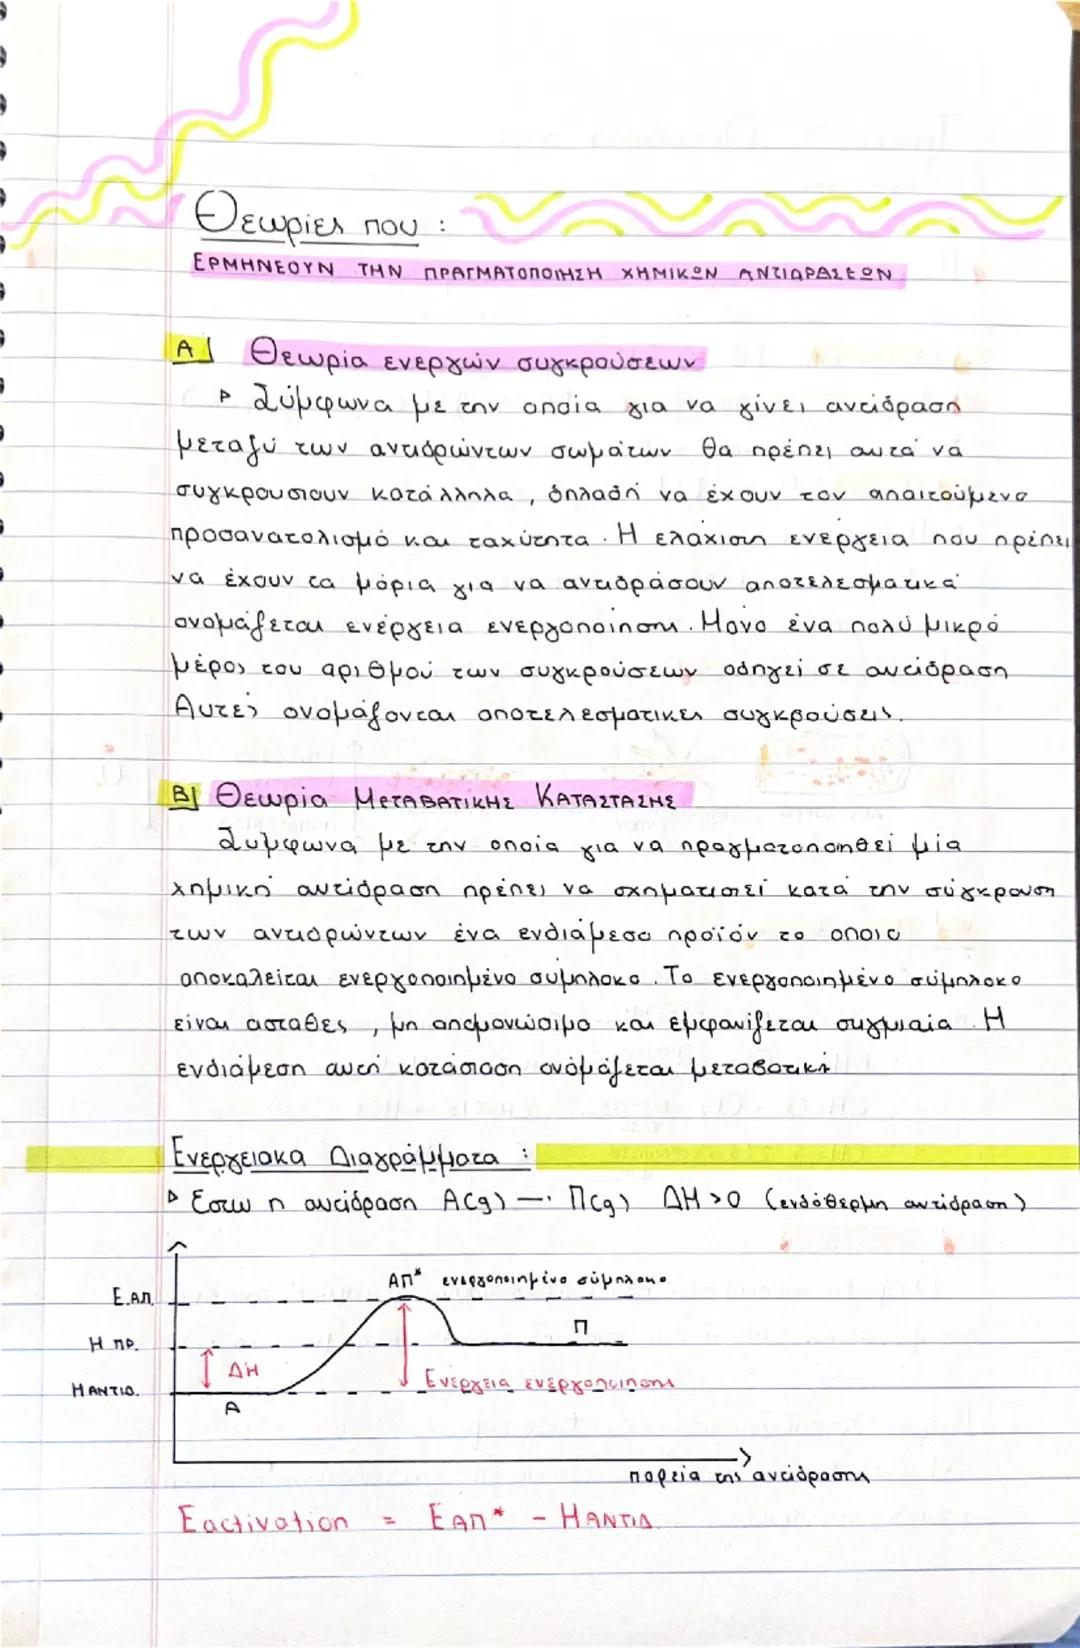 Θεωρίες που :
ΕΡΜΗΝΕΟΥΝ ΤΗΝ ΠΡΑΓΜΑΤΟΠΟΙΗΣΗ ΧΗΜΙΚΩΝ ΑΝΤΙΔΡΑΣΕΩΝ
Α Θεωρία ενεργών συγκρούσεων
▹ Σύμφωνα με την οποία για να γίνει αντίδραση
μεταξύ των αντιδρώντων σωμάτων θα πρέπει αυτά να
συγκρουστουν κατάλληλα, δηλαδή να έχουν τον απαιτούμενο
προσανατολισμό και ταχύτητα. Η ελάχιστη ενέργεια που πρέπει
να έχουν τα μόρια για να αντιδράσουν αποτελεσματικά
ονομάζεται ενέργεια ενεργοποίησης. Μονο ένα πολύ μικρό
μέρος του αριθμού των συγκρούσεων οδηγεί σε αντίδραση
Αυτές ονομάζονται αποτελεσματικες συγκρούσεις.
Β Θεωρία ΜΕΤΑΒΑΤΙΚΗΣ ΚΑΤΑΣΤΑΣΗΣ
Συμφωνα με την οποία για να πραγματοποιηθεί μία
χημική αντίδραση πρέπει να σχηματιστεί κατά την σύγκρουση
των αντιδρώντων ένα ενδιάμεσο προϊόν το οποίο
αποκαλείται ενεργοποιημένο σύμπλοκο. Το ενεργοποιημένο σύμπλοκο
είναι ασταθές, μη απομονώσιμο και εμφανίζεται στιγμιαία. Η
ενδιάμεση αυτή κατάσταση ονομάζεται μεταβατική
Ενεργειακα Διαγράμματα :
▹ Εστω η αντίδραση Α(g) → Π(g) ΔΗ >0 (ενδόθερμη αντίδραση)
ΑΠ* ενεργοποιημένο σύμπλοκο
Ε.ΑΠ.
Π
Η ΠΡ.
ΔΗ
Ενέργεια ενεργοποίησης
Η ΑΝΤΙΔ.
Α
πορεία της αντίδρασης
Eactivation = ΕΑΠ* - ΗΑΝΤΙΔ